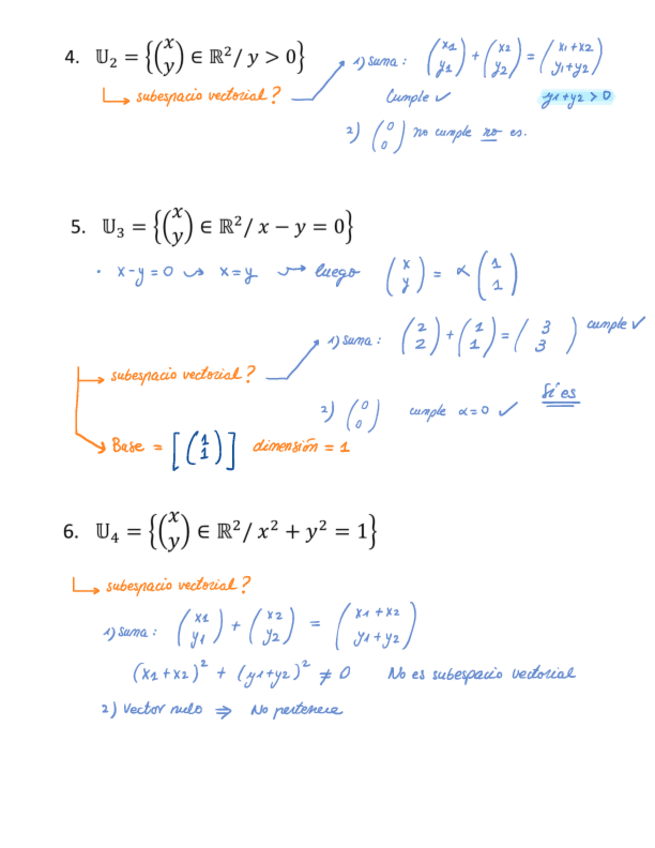 4. 𝕌₂ = {(x y) ∈ ℝ² / y > 0}
1) Suma : (x1 y1) + (x2 y2) = (x1+x2 y1+y2)
↳ subespacio vectorial ?
Cumple ✓ y1+y2 > 0
2) (0 0) no cumple no es.
5. 𝕌₃ = {(x y) ∈ ℝ² / x − y = 0}
· x-y=0 ⇝ x=y ⇝ luego (x y) = α (1 1)
1) Suma : (2 2) + (1 1) = (3 3) cumple ✓
subespacio vectorial ?
2) (0 0) cumple α=0 ✓ Sí es
Base = [(1 1)] dimensión = 1
6. 𝕌₄ = {(x y) ∈ ℝ² / x² + y² = 1}
↳ subespacio vectorial ?
1) Suma : (x1 y1) + (x2 y2) = (x1+x2 y1+y2)
(x1+x2)² + (y1+y2)² ≠ 0 No es subespacio vectorial
2) Vector nulo ⇒ No pertenece